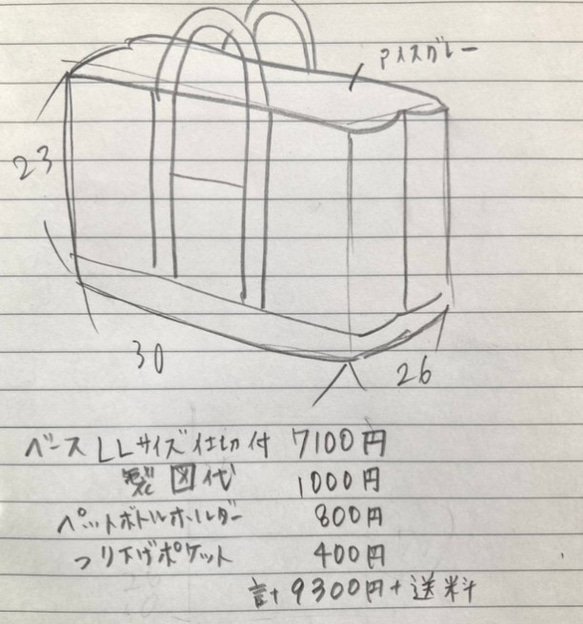 アイスグレー
23
30
26
ベース LLサイズ仕切付 7100円
製図代 1000円
ペットボトルホルダー 800円
つり下げポケット 400円
計 9300円+送料